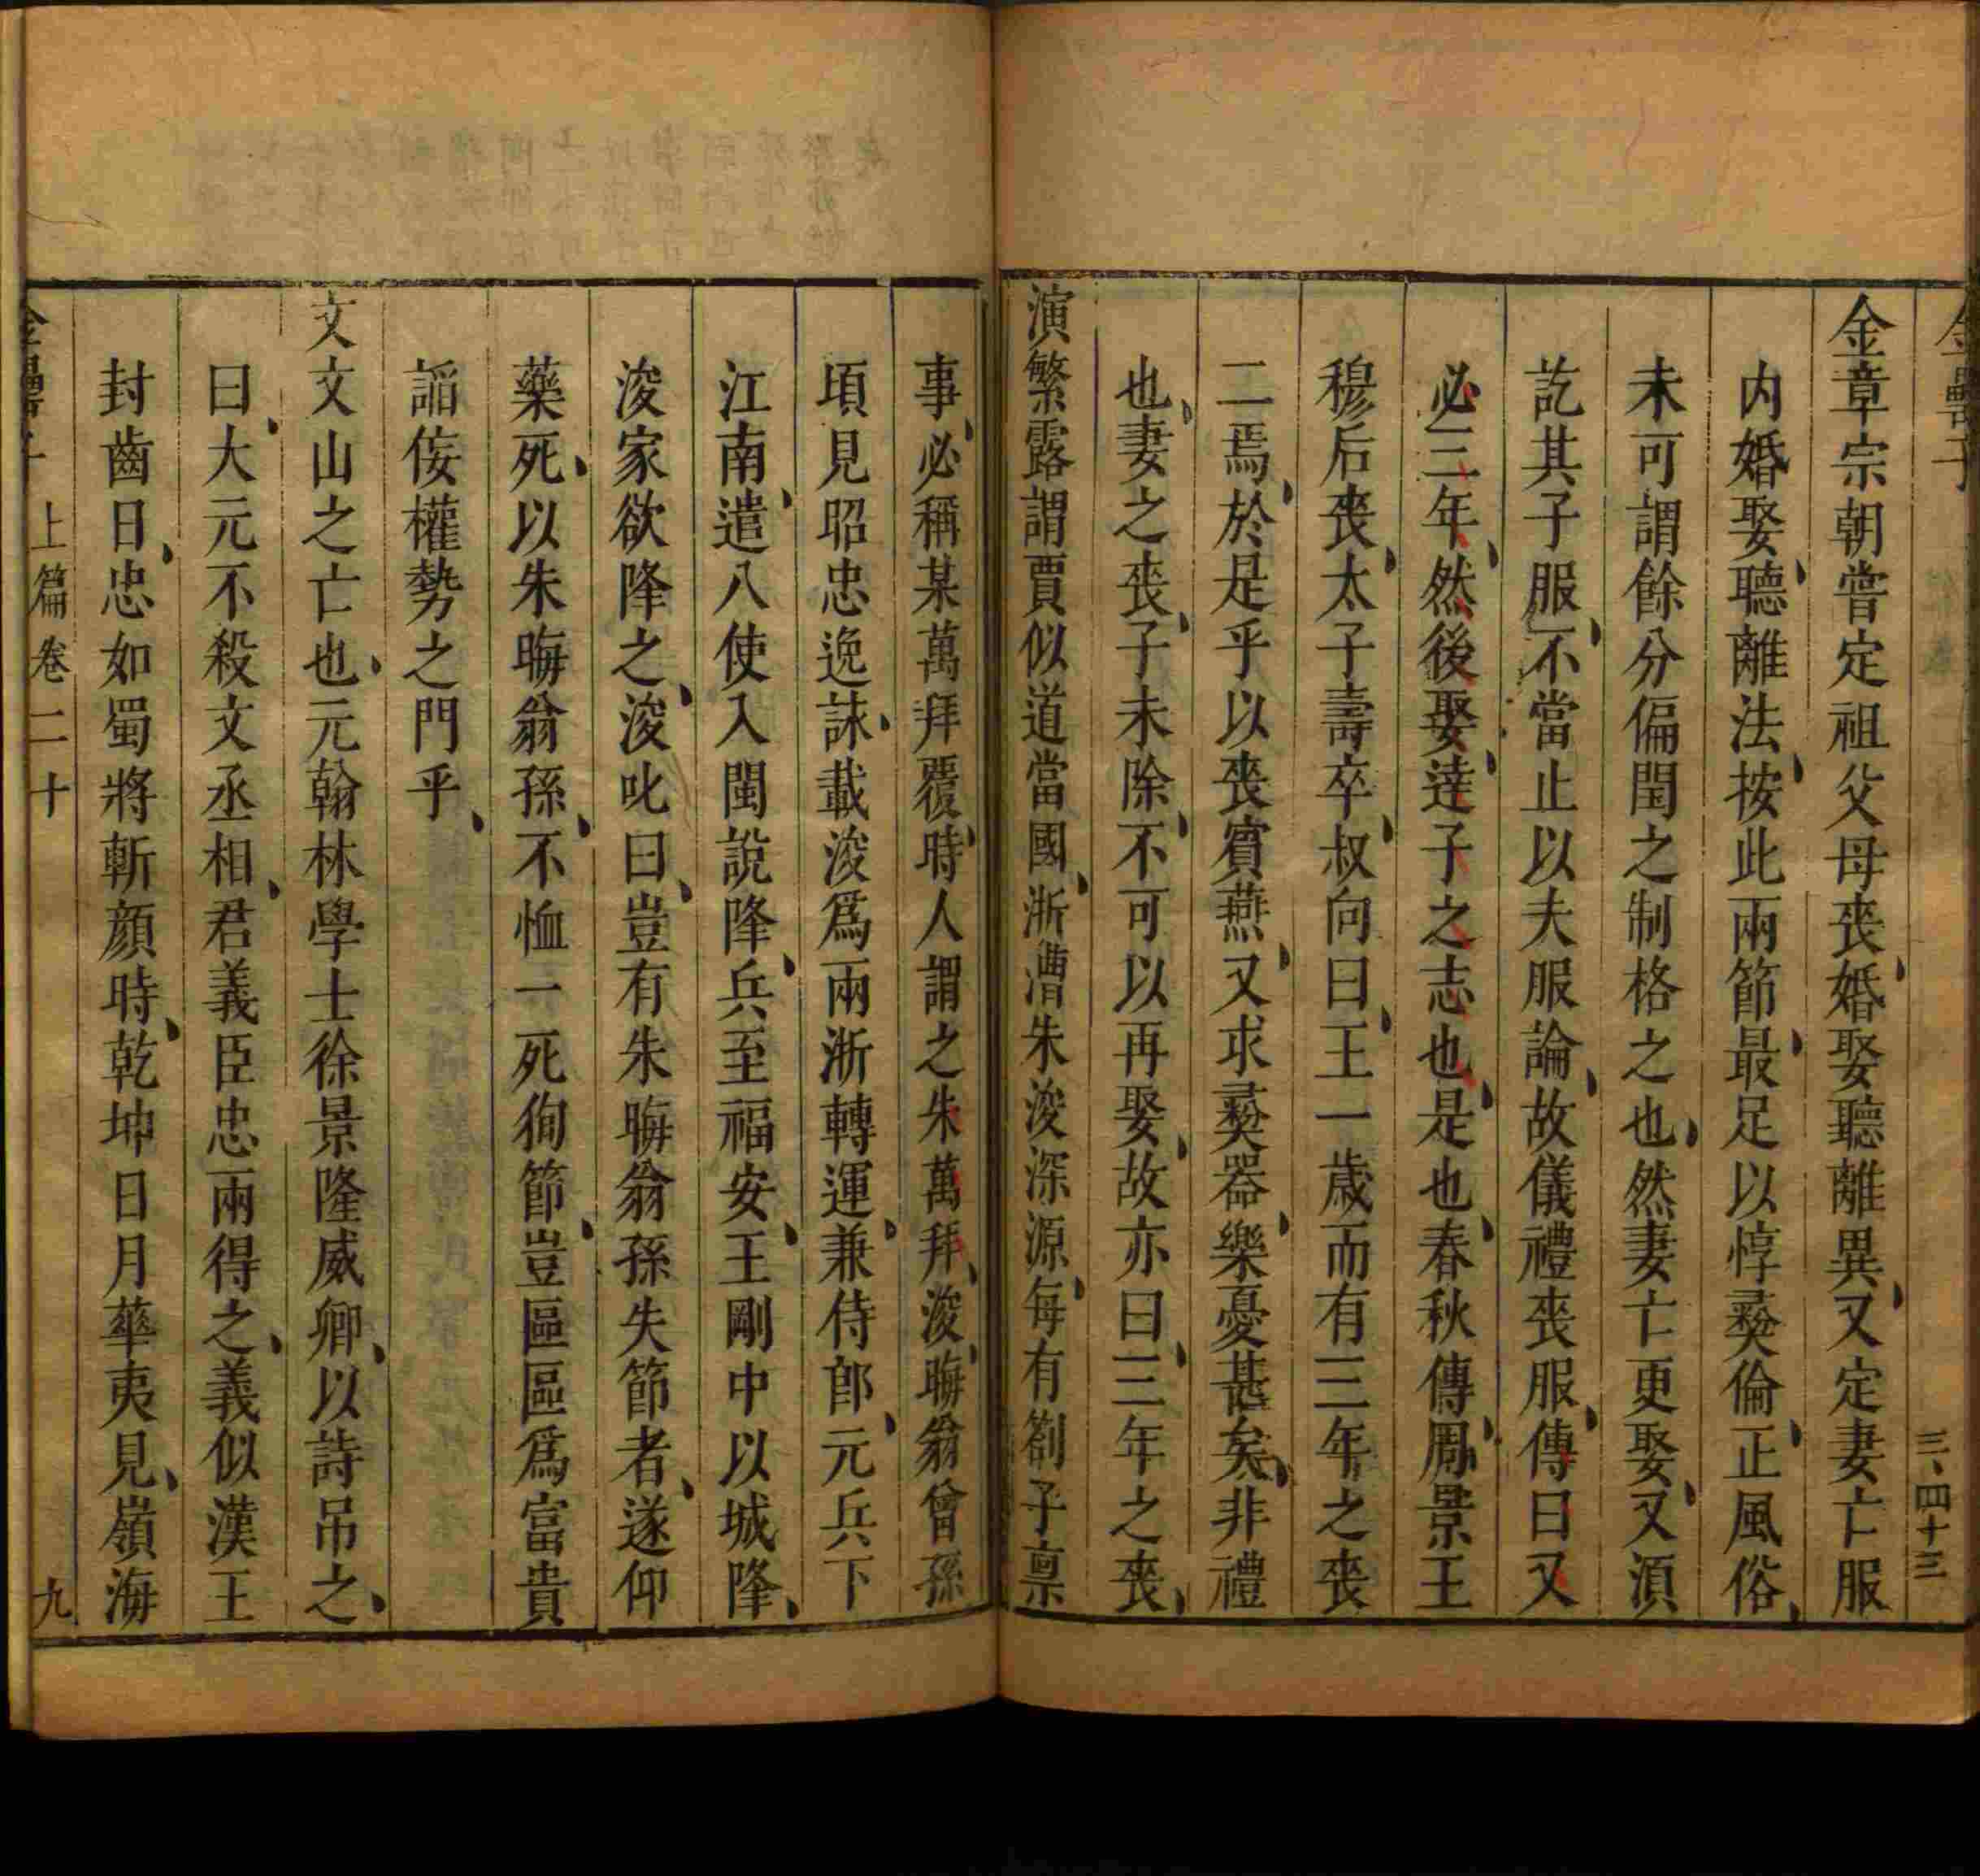 金罍子
三、四十三
金章宗朝嘗定祖父母喪婚娶聽離異又定妻亡服
内婚娶聽離法按此兩節最足以惇彝倫正風俗
未可謂餘分偏閏之制格之也然妻亡更娶又湏
訖其子服不當止以夫服論故儀禮喪服傳曰又
必三年然後娶達子之志也是也春秋傳周景王
穆后喪太子壽卒叔向曰王一歲而有三年之喪
二焉於是乎以喪賓燕又求彝器樂憂甚矣非禮
也妻之喪子未除不可以再娶故亦曰三年之喪
演繁露謂賈似道當國浙漕朱浚深源每有劄子禀
事必稱某萬拜覆時人謂之朱萬拜浚晦翁曾孫
頃見昭忠逸詠載浚爲兩浙轉運兼侍郎元兵下
江南遣八使入閩說降兵至福安王剛中以城降
浚家欲降之浚叱曰豈有朱晦翁孫失節者遂仰
藥死以朱晦翁孫不恤一死狥節豈區區爲富貴
謟侫權勢之門乎
文文山之亡也元翰林學士徐景隆威卿以詩吊之
曰大元不殺文丞相君義臣忠兩得之義似漢王
封齒日忠如蜀將斬顔時乾坤日月華夷見嶺海
金罍子 上篇卷二十 九